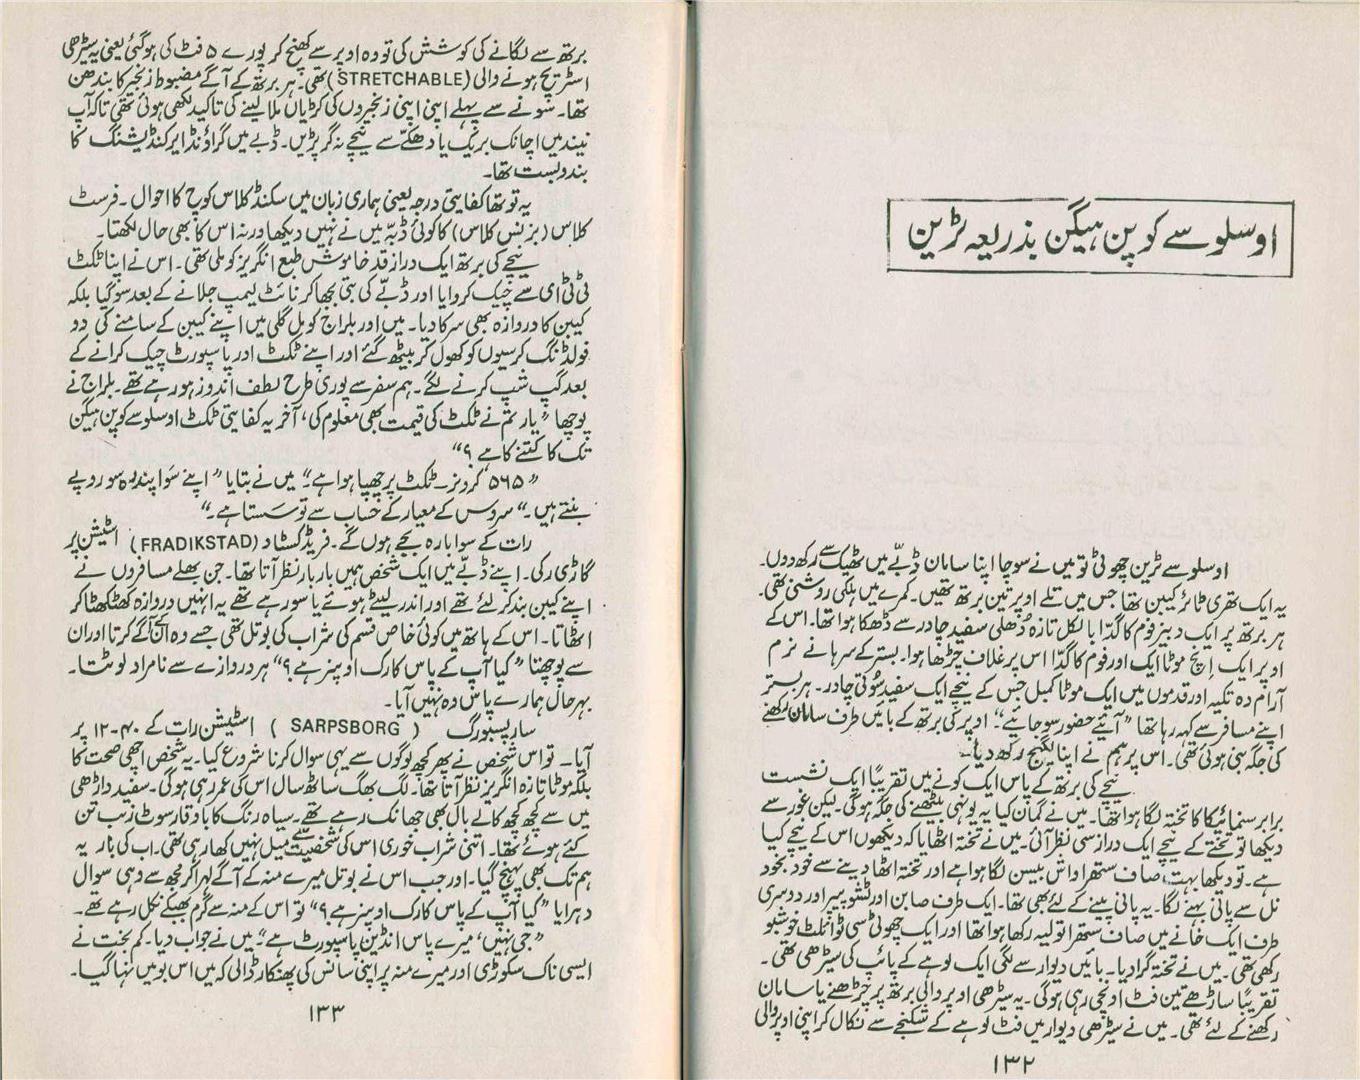 اوسلو سے کوپن ہیگن بذریعہ ٹرین
اوسلو سے ٹرین چھوٹی تو میں نے سوچا اپنا سامان ڈبّے میں ٹھیک سے رکھ دوں۔
یہ ایک تھری ٹائر کیبن تھا جس میں تلے اوپر تین برتھ تھیں۔ کمرے میں ہلکی روشنی تھی۔
ہر برتھ پر ایک دبیز فوم کا گدّا بالکل تازہ دُھلی سفید چادر سے ڈھکا ہوا تھا۔ اس کے
اوپر ایک اِنچ موٹا ایک اور فوم کا گدّا اس پر غلاف چڑھا ہوا۔ بستر کے سرہانے نرم
آرام دہ تکیہ اور قدموں میں ایک موٹا کمبل جس کے نیچے ایک سفید سُوتی چادر۔ ہر بستر
اپنے مسافر سے کہہ رہا تھا "آئیے حضور سو جائیے"۔ اوپر کی برتھ کے بائیں طرف سامان رکھنے
کی جگہ بنی ہوئی تھی۔ اس پر ہم نے اپنا لگیج رکھ دیا۔
نیچے کی برتھ کے پاس ایک کونے میں تقریباً ایک نشست
برابر سنمائیکا کا تختہ لگا ہوا تھا۔ میں نے گمان کیا یہ یونہی بیٹھنے کی جگہ ہوگی۔ لیکن غور سے
دیکھا تو تختے کے نیچے ایک دراز سی نظر آئی۔ میں نے تختہ اٹھایا کہ دیکھوں اس کے نیچے کیا
ہے۔ تو دیکھا بہت صاف ستھرا واش بیسن لگا ہوا ہے اور تختہ اٹھا دینے سے خود بخود
نل سے پانی بہنے لگا۔ یہ پانی پینے کے لئے بھی تھا۔ ایک طرف صابن اور ٹشو پیپر اور دوسری
طرف ایک خانے میں صاف ستھرا تولیہ رکھا ہوا تھا اور ایک چھوٹی سی ٹوائلٹ خوشبو
رکھی تھی۔ میں نے تختہ گرا دیا۔ بائیں دیوار سے لگی ایک لوہے کے پائپ کی سیڑھی تھی۔
تقریباً ساڑھے تین فٹ اونچی رہی ہوگی۔ یہ سیڑھی اوپر والی برتھ پر چڑھنے یا سامان
رکھنے کے لئے تھی۔ میں نے سیڑھی دیوار میں فٹ لوہے کے شکنجے سے نکال کر اپنی اوپر والی
۱۳۲
برتھ سے لگانے کی کوشش کی تو وہ اوپر سے کھنچ کر پورے ۵ فٹ کی ہوگئی یعنی یہ سیڑھی
اسٹریچ ہونے والی (STRETCHABLE) تھی۔ ہر برتھ کے آگے مضبوط زنجیر کا بندھن
تھا۔ سونے سے پہلے اپنی اپنی زنجیروں کی کڑیاں ملا لینے کی تاکید لکھی ہوئی تھی تاکہ آپ
نیند میں اچانک بریک یا دھکّے سے نیچے نہ گر پڑیں۔ ڈبے میں گراؤنڈ ایرکنڈیشننگ کا
بندوبست تھا۔
یہ تو تھا کفایتی درجہ یعنی ہماری زبان میں سکنڈ کلاس کوچ کا احوال۔ فرسٹ
کلاس (بزنس کلاس) کا کوئی ڈبّہ میں نے نہیں دیکھا ورنہ اس کا بھی حال لکھتا۔
نیچے کی برتھ ایک دراز قد خاموش طبع انگریز کو ملی تھی۔ اس نے اپنا ٹکٹ
ٹی ٹی ای سے چیک کروایا اور ڈبّے کی بتی بجھا کر نائٹ لیمپ جلانے کے بعد سو گیا بلکہ
کیبن کا دروازہ بھی سرکا دیا۔ میں اور بلراج کومل گلی میں اپنے کیبن کے سامنے کی دو
فولڈنگ کرسیوں کو کھول کر بیٹھ گئے اور اپنے ٹکٹ اور پاسپورٹ چیک کرانے کے
بعد گپ شپ کرنے لگے۔ ہم سفر سے پوری طرح لطف اندوز ہو رہے تھے۔ بلراج نے
پوچھا "یار تم نے ٹکٹ کی قیمت بھی معلوم کی، آخر یہ کفایتی ٹکٹ اوسلو سے کوپن ہیگن
تک کا کتنے کا ہے؟"
"۵۶۵ کرونرز۔ ٹکٹ پر چھپا ہوا ہے"۔ میں نے بتایا "اپنے سَوا پندرہ سو روپے
بنتے ہیں۔" سروس کے معیار کے حساب سے تو سَستا ہے۔"
رات کے سوا بارہ بجے ہوں گے۔ فریڈکسٹاد (FRADIKSTAD) اسٹیشن پر
گاڑی رُکی۔ اپنے ڈبّے میں ایک شخص ہمیں بار بار نظر آتا تھا۔ جن بھلے مسافروں نے
اپنے کیبن بند کر لئے تھے اور اندر لیٹے ہوئے یا سو رہے تھے یہ انہیں دروازہ کھٹکھٹا کر
اٹھاتا۔ اس کے ہاتھ میں کوئی خاص قسم کی شراب کی بوتل تھی جسے وہ ان کے آگے کرتا اور ان
سے پوچھتا "کیا آپ کے پاس کارک اوپنر ہے؟" ہر دروازے سے نامراد لوٹتا۔
بہرحال ہمارے پاس وہ نہیں آیا۔
سارپسبورگ (SARPSBORG) اسٹیشن رات کے ۴۰-۱۲ پر
آیا۔ تو اس شخص نے پھر کچھ لوگوں سے یہی سوال کرنا شروع کیا۔ یہ شخص اچھی صحت کا
بلکہ موٹا تازہ انگریز نظر آتا تھا۔ لگ بھگ ساٹھ سال اس کی عمر رہی ہوگی۔ سفید داڑھی
میں سے کچھ کچھ کالے بال بھی جھانک رہے تھے۔ سیاہ رنگ کا باوقار سوٹ زیب تن
کئے ہوئے تھا۔ اتنی شراب خوری اس کی شخصیت سے میل نہیں کھا رہی تھی۔ اب کی بار یہ
ہم تک بھی پہنچ گیا۔ اور جب اس نے بوتل میرے منہ کے آگے لہرا کر مجھ سے وہی سوال
دہرایا "کیا آپ کے پاس کارک اوپنر ہے؟" تو اس کے منہ سے گرم بھبکے نکل رہے تھے۔
"جی نہیں، میرے پاس انڈین پاسپورٹ ہے"۔ میں نے جواب دیا۔ کم بخت نے
ایسی ناک سکوڑی اور میرے منہ پر اپنی سانس کی پھنکار ڈالی کہ میں اس بو میں نہا گیا۔
۱۳۳